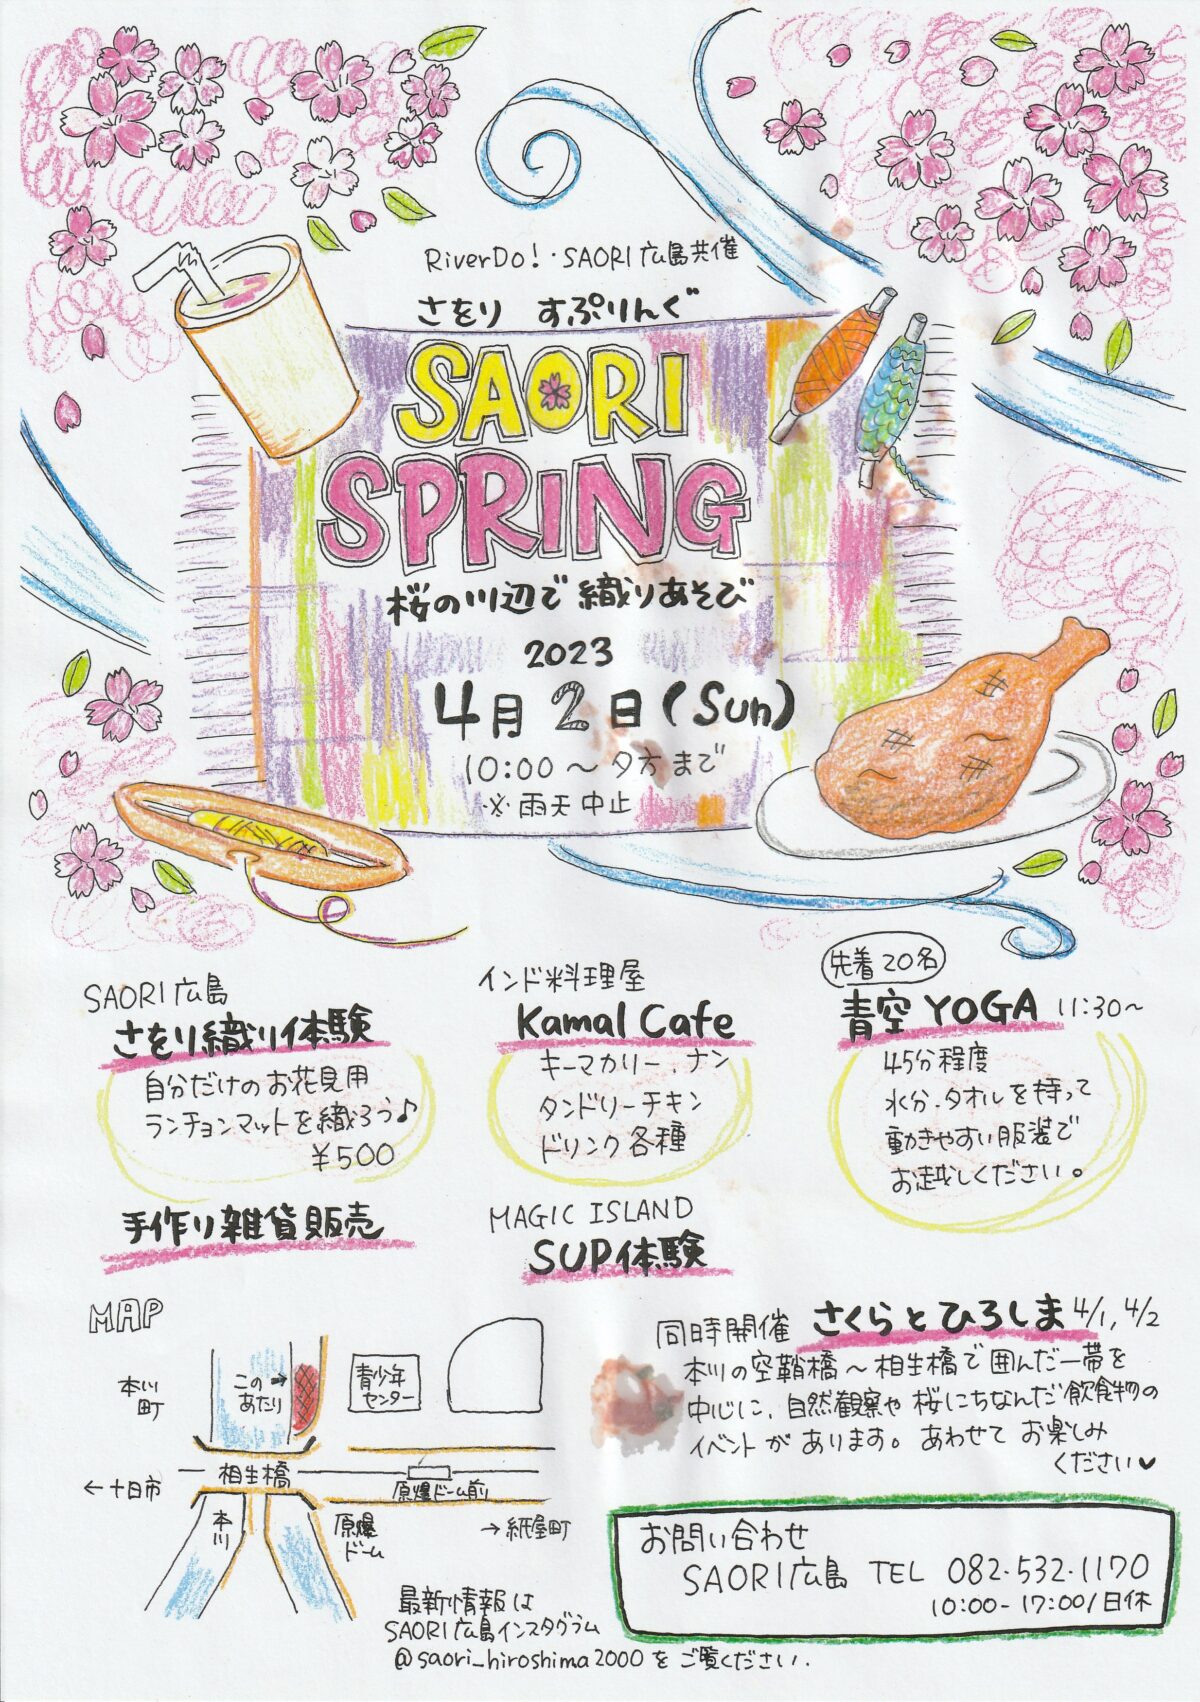 RiverDo!・SAORI広島共催
さをり すぷりんぐ
SAORI
SPRING
桜の川辺で織りあそび
2023
4月2日(Sun)
10:00～夕方まで
※雨天中止
SAORI広島
さをり織り体験
自分だけのお花見用
ランチョンマットを織ろう♪
¥500
手作り雑貨販売
インド料理屋
Kamal Cafe
キーマカリー、ナン
タンドリーチキン
ドリンク各種
MAGIC ISLAND
SUP体験
先着20名
青空YOGA 11:30～
45分程度
水分、タオルを持って
動きやすい服装で
お越しください。
MAP
本川町
このあたり→
青少年
センター
相生橋
←十日市
原爆ドーム前
本川
原爆
ドーム
→紙屋町
同時開催 さくらとひろしま 4/1, 4/2
本川の空鞘橋～相生橋で囲んだ一帯を
中心に、自然観察や桜にちなんだ飲食物の
イベントがあります。あわせてお楽しみ
ください♥
お問い合わせ
SAORI広島 TEL 082・532・1170
10:00-17:00/日休
最新情報は
SAORI広島インスタグラム
@saori_hiroshima2000をご覧ください.